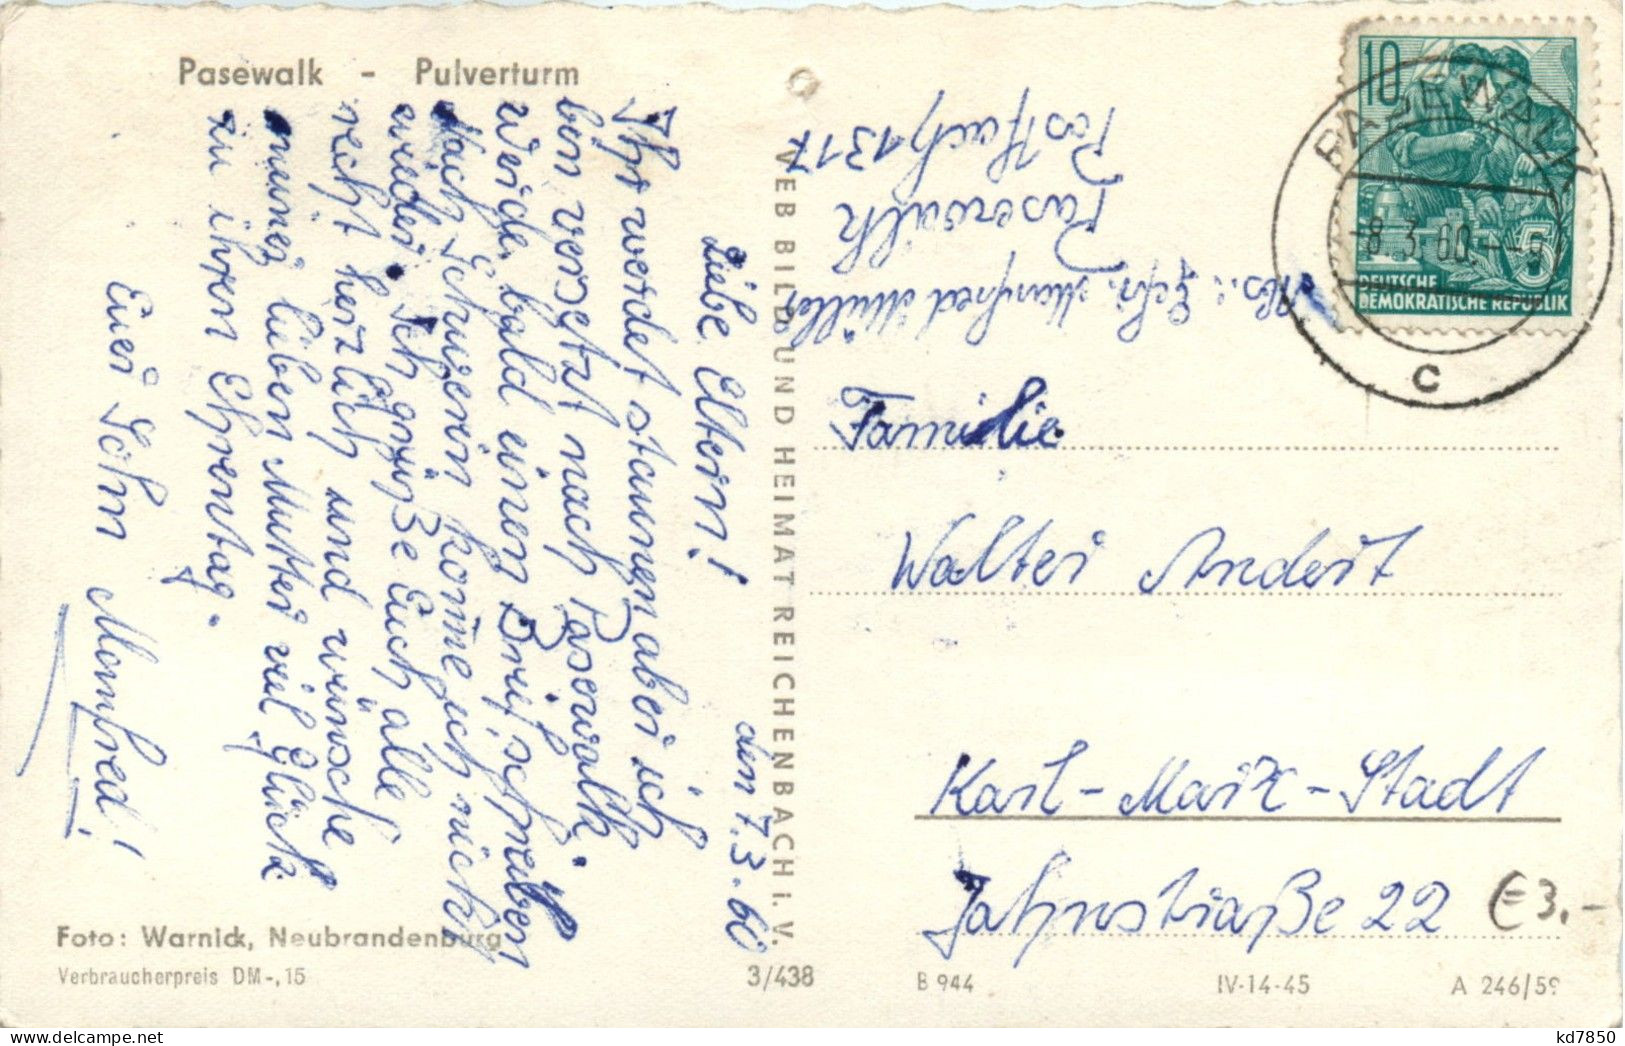 Pasewalk - Pulverturm
den 7.3.60
Liebe Eltern!
Ihr werdet staunen aber ich
bin versetzt nach Pasewalk.
Werde bald einen Brief schreiben
Nach Schwerin komme ich nicht
wieder. Ich grüße Euch alle
recht herzlich und wünsche
meiner lieben Mutter viel Glück
zu ihren Ehrentag.
Euer Sohn Manfred!
Foto: Warnick, Neubrandenburg
Verbraucherpreis DM-,15
VEB BILD UND HEIMAT REICHENBACH i. V.
3/438
Abs.: Gefr. Manfred Müller
Pasewalk
Postfach 1317
10
DEUTSCHE
DEMOKRATISCHE REPUBLIK
5
PASEWALK
-8.3.60.-
c
Familie
Walter Andert
Karl-Marx-Stadt
Jahnstraße 22
€3.-
B 944
IV-14-45
A 246/59
www.delcampe.net
kd7850